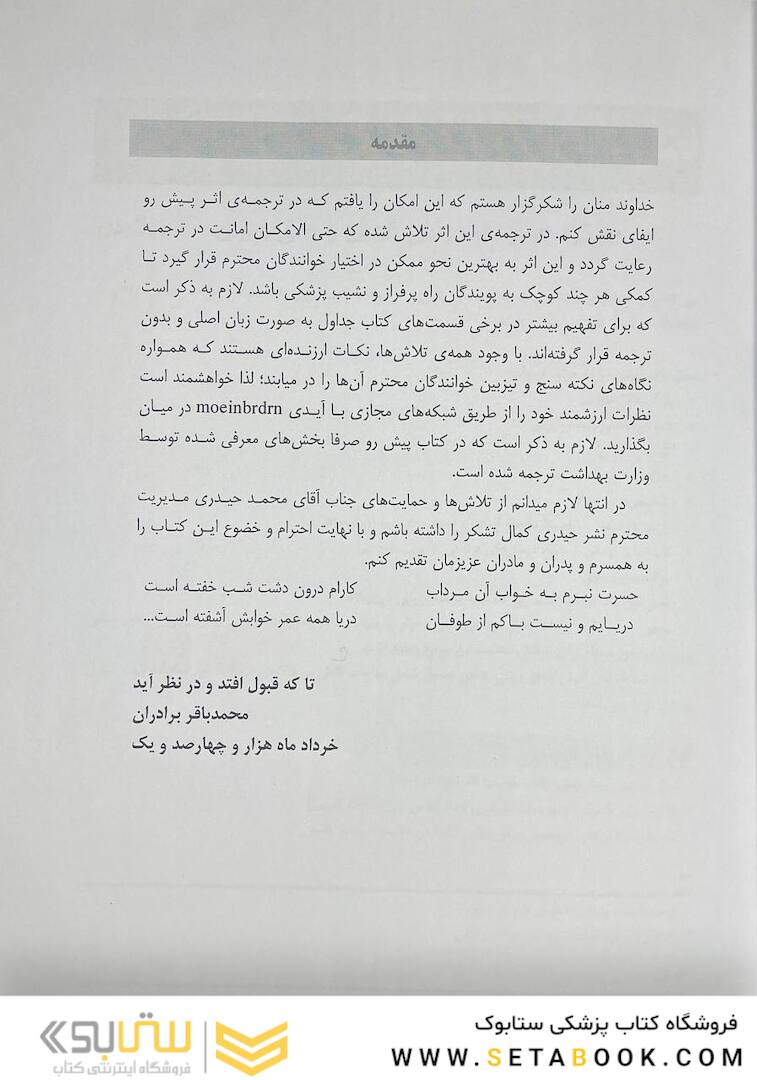 مقدمه
خداوند منان را شکرگزار هستم که این امکان را یافتم که در ترجمه‌ی اثر پیش رو
ایفای نقش کنم. در ترجمه‌ی این اثر تلاش شده که حتی الامکان امانت در ترجمه
رعایت گردد و این اثر به بهترین نحو ممکن در اختیار خوانندگان محترم قرار گیرد تا
کمکی هر چند کوچک به پویندگان راه پرفراز و نشیب پزشکی باشد. لازم به ذکر است
که برای تفهیم بیشتر در برخی قسمت‌های کتاب جداول به صورت زبان اصلی و بدون
ترجمه قرار گرفته‌اند. با وجود همه‌ی تلاش‌ها، نکات ارزنده‌ای هستند که همواره
نگاه‌های نکته سنج و تیزبین خوانندگان محترم آن‌ها را در میابند؛ لذا خواهشمند است
نظرات ارزشمند خود را از طریق شبکه‌های مجازی با آیدی moeinbrdrn در میان
بگذارید. لازم به ذکر است که در کتاب پیش رو صرفا بخش‌های معرفی شده توسط
وزارت بهداشت ترجمه شده است.
در انتها لازم میدانم از تلاش‌ها و حمایت‌های جناب آقای محمد حیدری مدیریت
محترم نشر حیدری کمال تشکر را داشته باشم و با نهایت احترام و خضوع این کتاب را
به همسرم و پدران و مادران عزیزمان تقدیم کنم.
حسرت نبرم به خواب آن مرداب کارام درون دشت شب خفته است
دریایم و نیست باکم از طوفان دریا همه عمر خوابش آشفته است...
تا که قبول افتد و در نظر آید
محمدباقر برادران
خرداد ماه هزار و چهارصد و یک
فروشگاه کتاب پزشکی ستابوک
WWW.SETABOOK.COM
ستابوک
فروشگاه اینترنتی کتاب